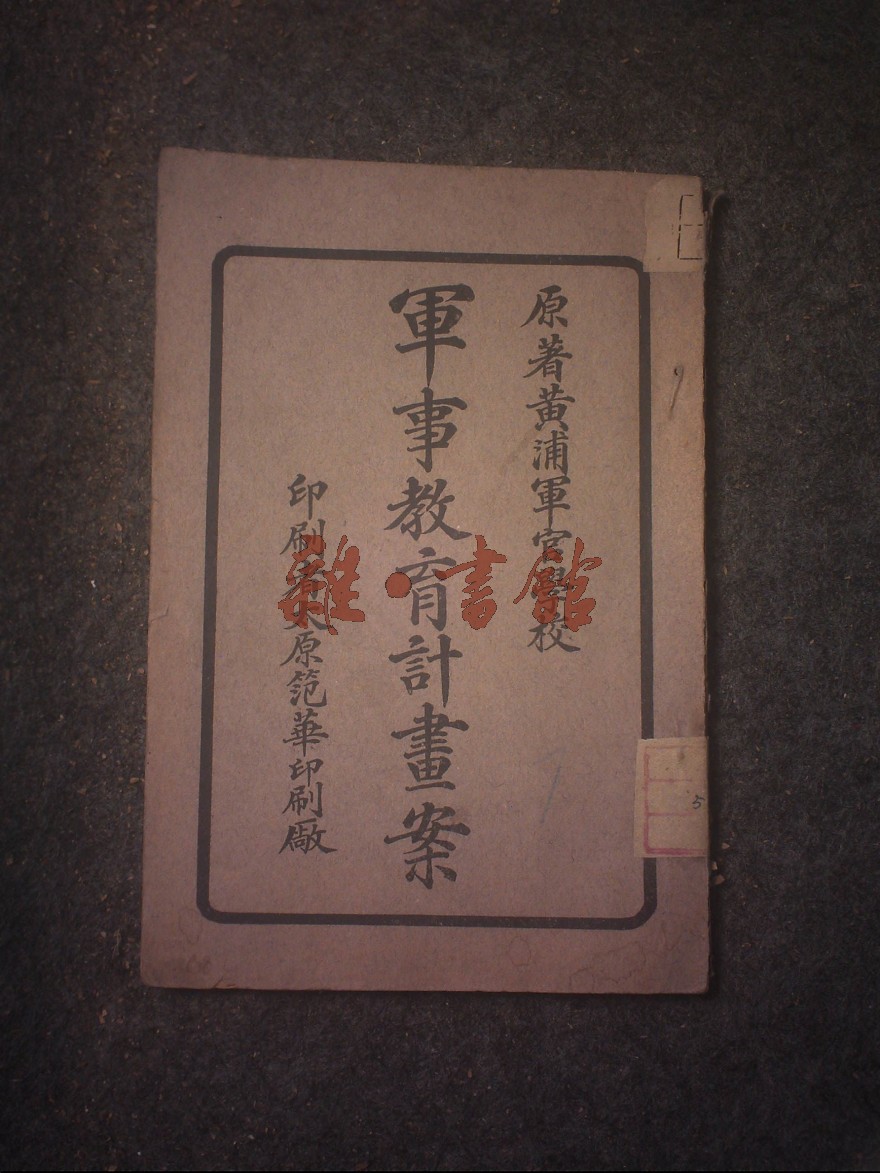 原著黄浦軍官學校
軍事教育計畫案
印刷者太原范華印刷廠
雜·書館
5